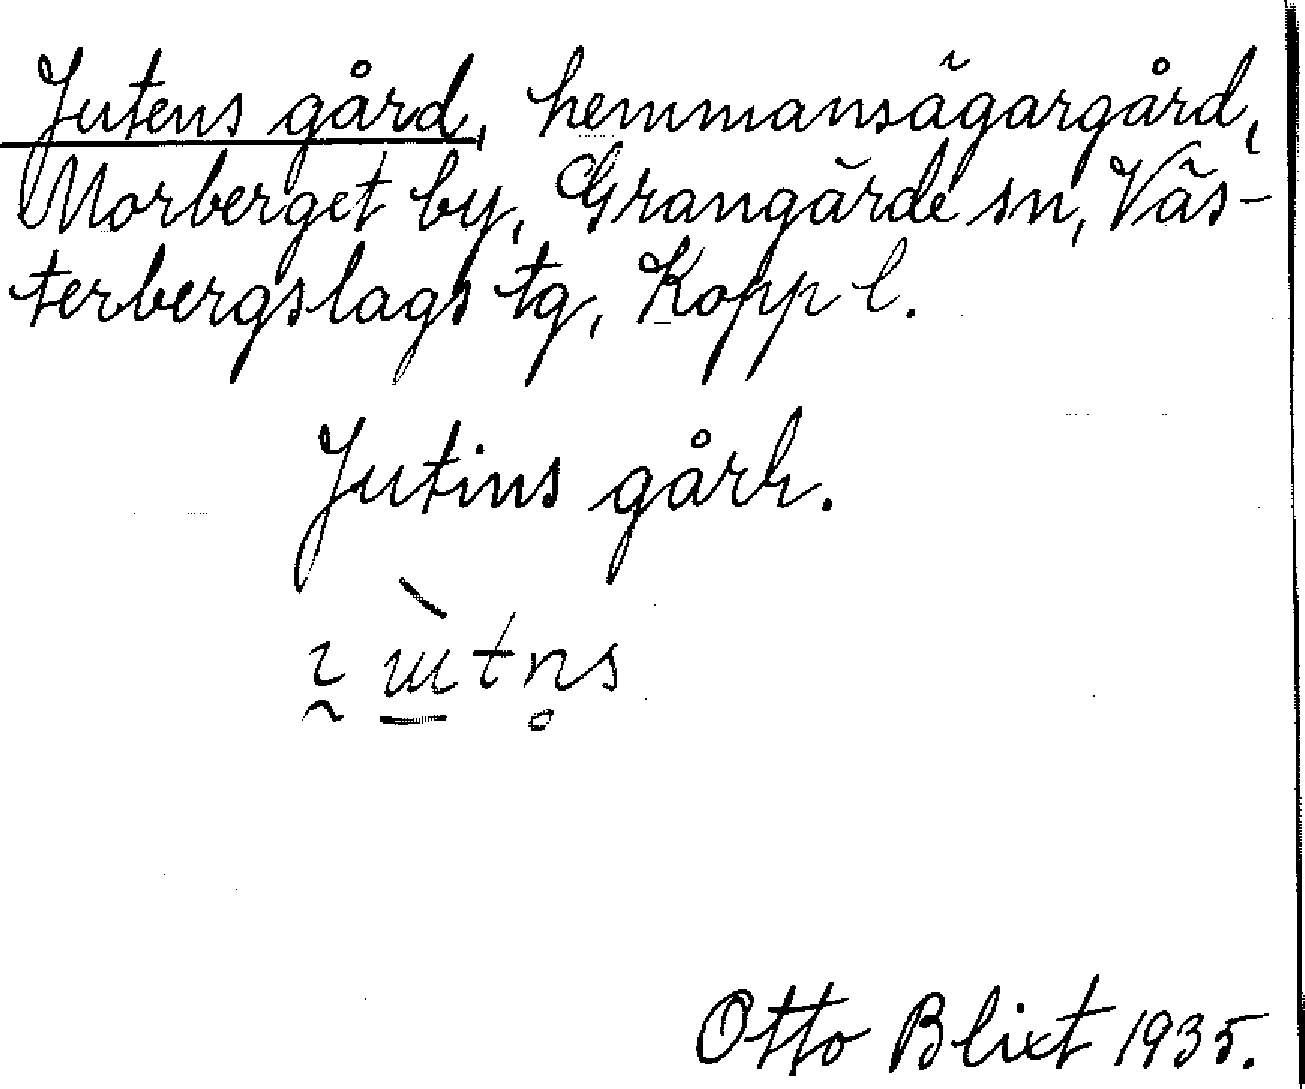 Jutens gård, hemmansägargård,
Morberget by, Grangärde sn, Väs-
terbergslags tg, Kopp l.
Jutins gårk.
Otto Blixt 1935.